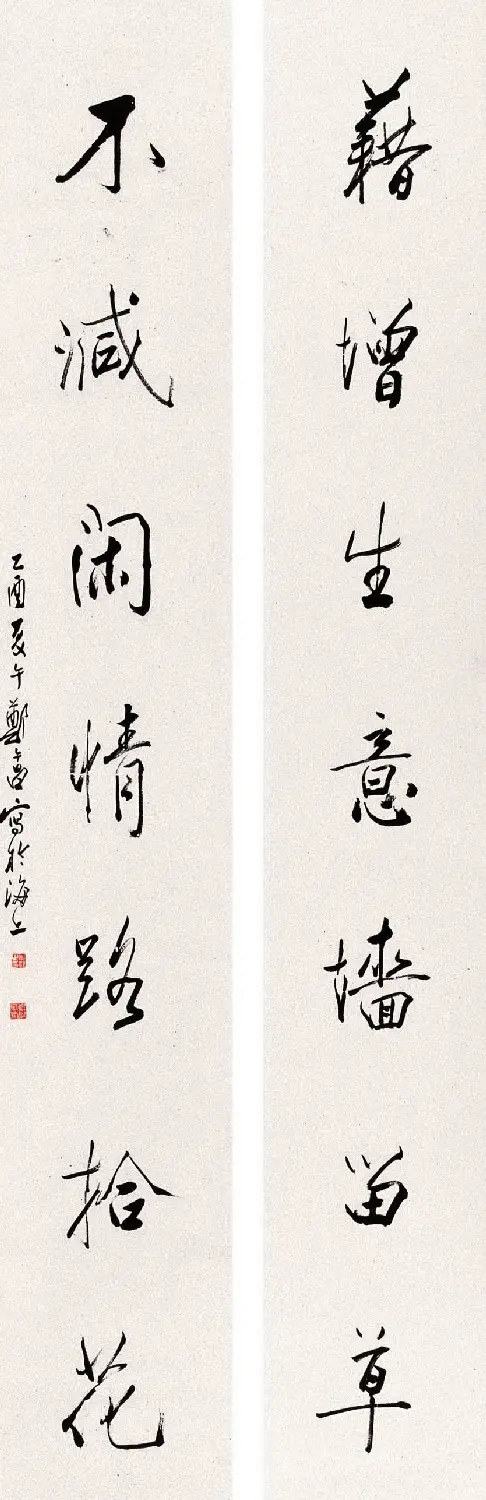 藉增生意墙留草
不减闲情路拾花
乙酉夏午郑

写于海上